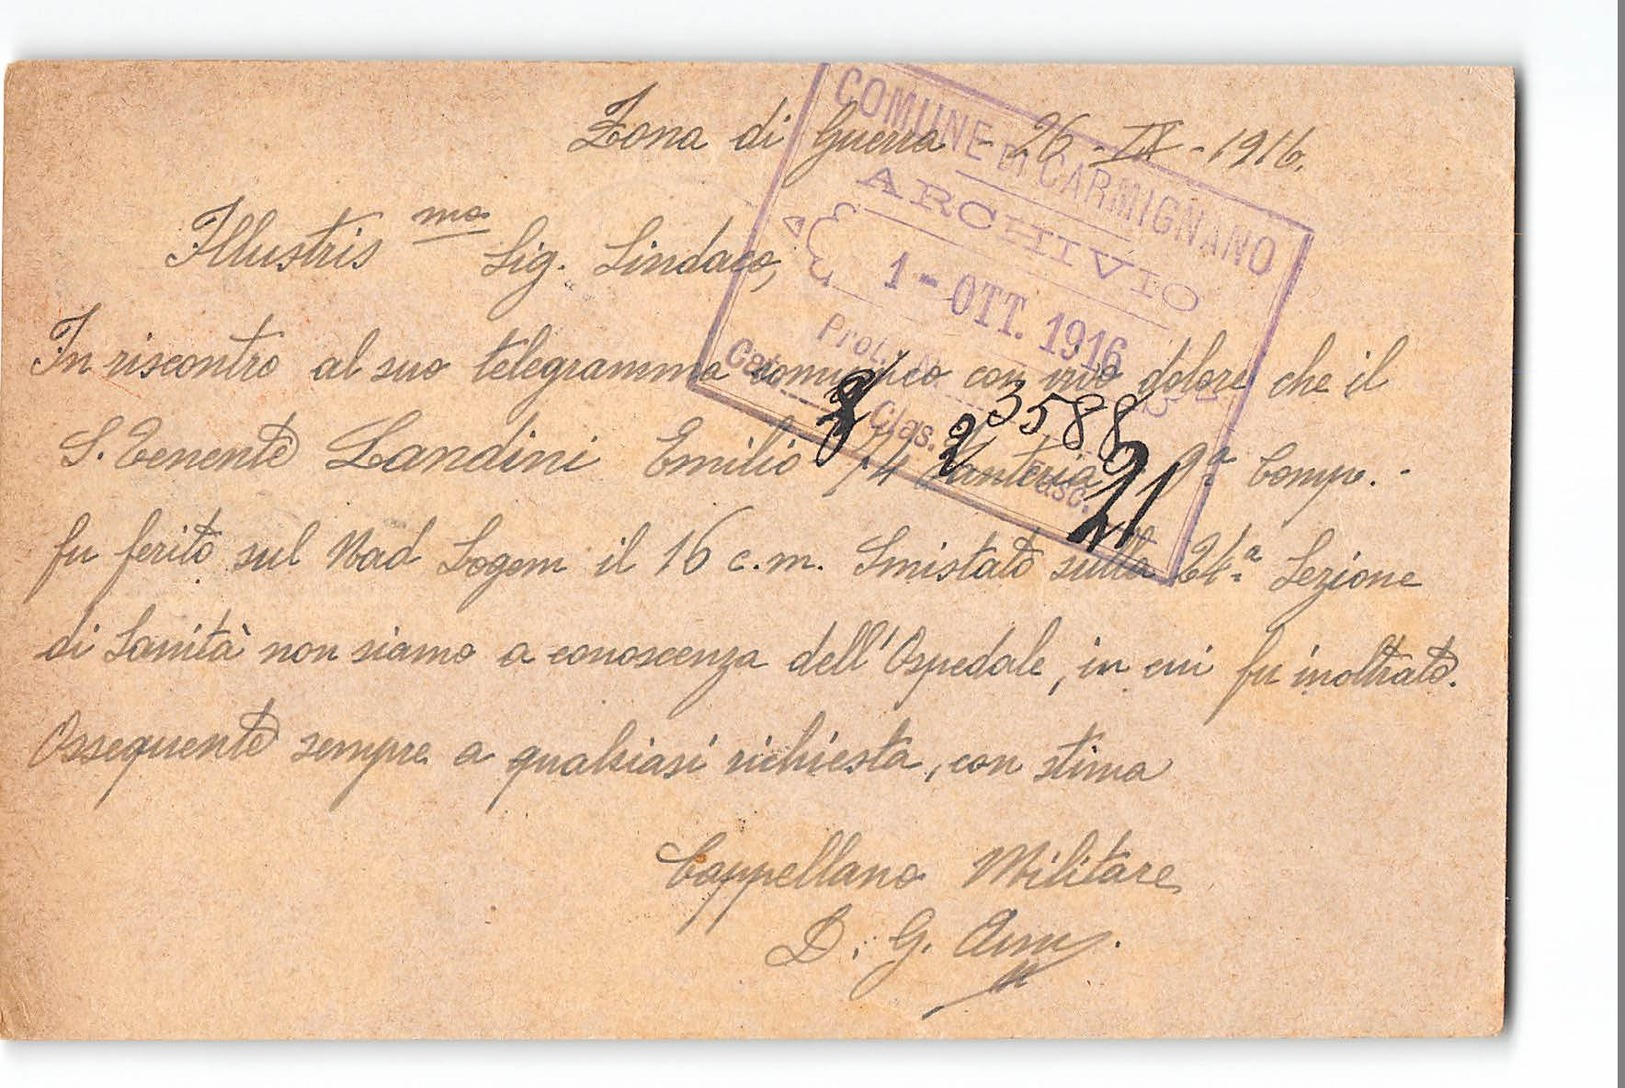 Zona di Guerra - 26 - IX - 1916.
COMUNE DI CARMIGNANO
ARCHIVIO
1 - OTT. 1916
Prot. N. 3588
Cat. 8 Clas. 2 Fasc. 21
Illustris mo Sig. Sindaco,
In riscontro al suo telegramma comunico con vivo dolore che il
S. Tenente Landini Emilio 74 fanteria 9ª Comp. -
fu ferito sul Nad Logem il 16 c.m. Smistato sulla 24ª Sezione
di Sanità non siamo a conoscenza dell'Ospedale, in cui fu inoltrato.
Ossequente sempre a qualsiasi richiesta, con stima
Cappellano Militare
D. G.